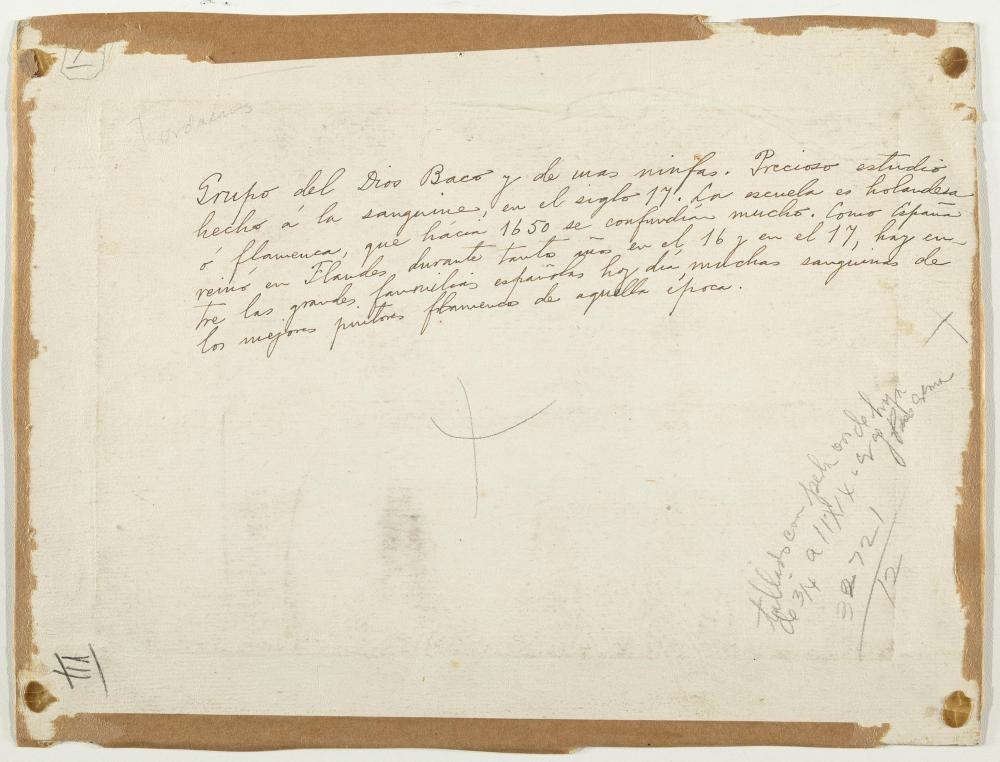 1
Jordaens
Grupo del Dios Baco y de unas ninfas. Precioso estudio
hecho á la sanguine, en el siglo 17. La escuela es holandesa
ó flamenca, que hacia 1650 se confundían mucho. Como España
reinó en Flandes durante tanto años en el 16 y en el 17, hay en-
tre las grandes familias españolas hoy día muchas sanguinas de
los mejores pintores flamencos de aquella época.
de 3/4 a
32721
12